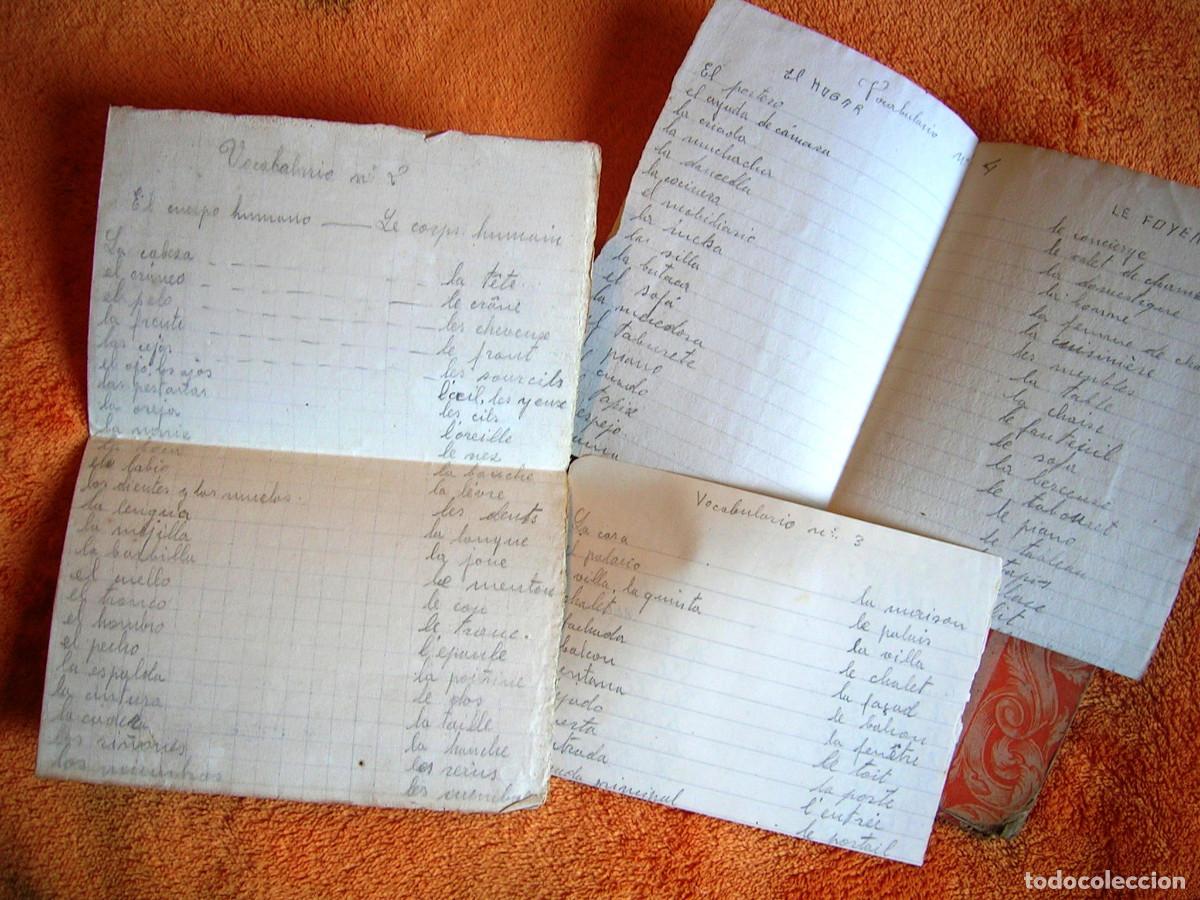 Vocabulario nº 2º
El cuerpo humano — Le corps humain
La cabeza la tête
el cráneo le crâne
el pelo les cheveux
la frente le front
las cejas les sourcils
el ojo, los ojos l'oeil, les yeux
las pestañas les cils
la oreja l'oreille
la nariz le nez
la boca la bouche
el labio la lèvre
los dientes y las muelas. les dents
la lengua la langue
la mejilla la joue
la barbilla le menton
el cuello le cou
el tronco le tronc.
el hombro l'épaule
el pecho la poitrine
la espalda le dos
la cintura la taille
la cadera la hanche
los riñones les reins
los miembros les membr
Vocabulario nº 4
El HOGAR LE FOYER
El portero le concierge
el ayuda de cámara le valet de cham
la criada la domestique
la muchacha la bonne
la doncella la femme de cha
la cocinera la cuisinière
el mobiliario les meubles
la mesa la table
la silla la chaise
la butaca le fauteuil
el sofá le sofa
la mecedora la berceuse
el taburete le tabouret
piano le piano
cuadro le tableau
tapiz tapis
espejo glace
lit
Vocabulario nº 3
La casa la maison
palacio le palais
villa, la quinta la villa
chalet le chalet
fachada la façad
balcon le balcon
entana la fenêtre
jado le toit
erta la porte
trada l'entrée
principal le portail
todocoleccion